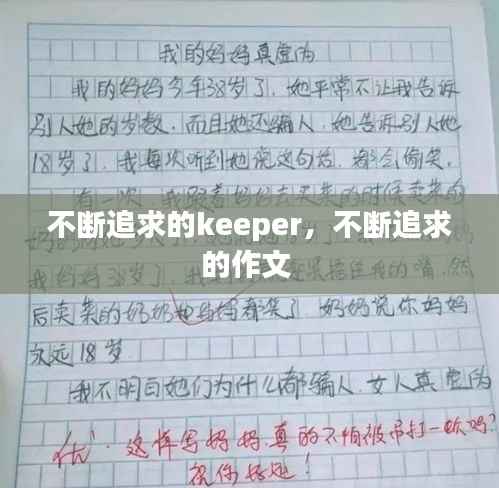 我的妈妈真虚伪
我的妈妈今年38岁了,她平常不让我告诉
别人她的岁数,而且她还骗人,她告诉别人她
18岁了,我每次听到她说这句话,都会偷笑。
有一次,我跟着妈妈去买菜的时候卖菜的
不断追求的keeper，不断追求
的作文
我妈妈38岁了
捂住我的嘴,然
后卖菜的奶奶和妈妈都笑了,奶奶说你妈妈
永远18岁
我不明白她们为什么都骗人,女人真虚伪
优.这样写妈妈,真的不怕被吊打一顿吗?
祝你好运!